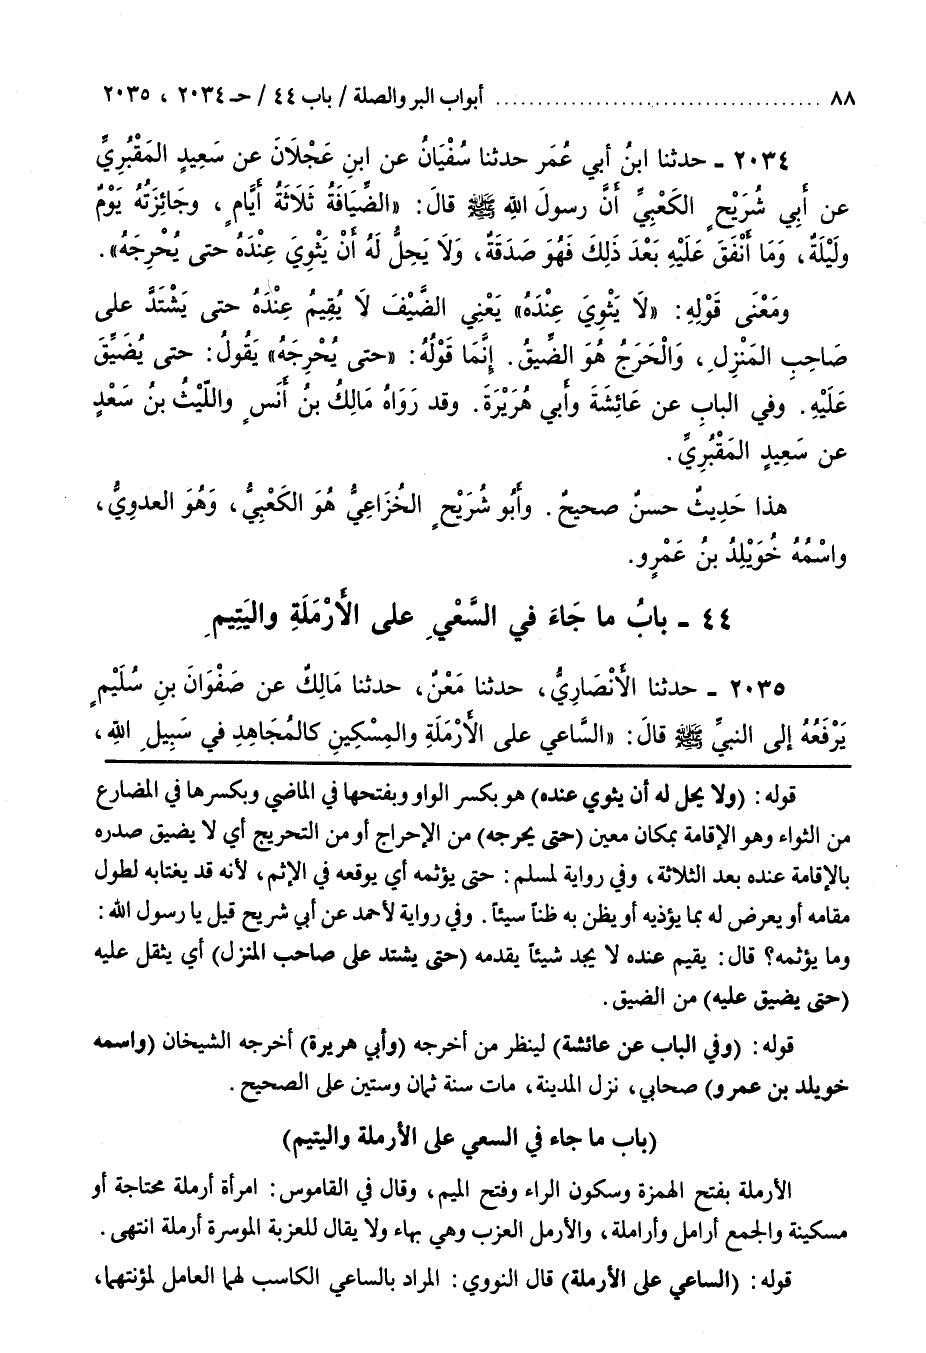 ٨٨ ........................................ أبواب البر والصلة / باب ٤٤ / حـ ٢٠٣٤ ، ٢٠٣٥
٢٠٣٤ ـ حدثنا ابنُ أبي عُمَر حدثنا سُفْيَانُ عن ابنِ عَجْلَانَ عن سَعِيدٍ المَقْبُرِيِّ
عن أَبِي شُرَيْحٍ الكَعْبِيِّ أَنَّ رسولَ اللهِ ﷺ قالَ: «الضِّيَافَةُ ثَلَاثَةُ أَيَّامٍ، وجَائِزَتُهُ يَوْمٌ
ولَيْلَةٌ، وَمَا أَنْفَقَ عَلَيْهِ بَعْدَ ذَلِكَ فَهُوَ صَدَقَةٌ، وَلَا يَحِلُّ لَهُ أَنْ يَثْوِيَ عِنْدَهُ حتى يُحْرِجَهُ».
ومَعْنَى قَوْلِهِ: «لَا يَثْوِيَ عِنْدَهُ» يَعْنِي الضَّيْفَ لَا يُقِيمُ عِنْدَهُ حتى يَشْتَدَّ على
صَاحِبِ المَنْزِلِ، وَالْحَرَجُ هُوَ الضِّيقُ. إِنَّمَا قَوْلُهُ: «حتى يُحْرِجَهُ» يَقُولُ: حتى يُضَيِّقَ
عَلَيْهِ. وفي البابِ عن عَائِشَةَ وأَبي هُرَيْرَةَ. وقد رَوَاهُ مَالِكُ بنُ أَنَسٍ واللّيْثُ بنُ سَعْدٍ
عن سَعِيدٍ المَقْبُرِيِّ.
هذا حَدِيثٌ حسنٌ صحيحٌ. وأَبُو شُرَيْحٍ الخُزَاعِيُّ هُوَ الكَعْبِيُّ، وَهُوَ العدوِيُّ،
واسْمُهُ خُوَيْلِدُ بنُ عَمْرٍو.
٤٤ ـ بابُ ما جَاءَ في السَّعْيِ على الأَرْمَلَةِ واليَتِيمِ
٢٠٣٥ ـ حدثنا الأَنْصَارِيُّ، حدثنا مَعْنٌ، حدثنا مَالِكٌ عن صَفْوَانَ بنِ سُلَيْمٍ
يَرْفَعُهُ إلى النبيِّ ﷺ قالَ: «السَّاعي على الأَرْمَلَةِ والمِسْكِينِ كالمُجَاهِدِ في سَبِيلِ اللهِ،
قوله: (ولا يحل له أن يثوي عنده) هو بكسر الواو وبفتحها في الماضي وبكسرها في المضارع
من الثواء وهو الإقامة بمكان معين (حتى يحرجه) من الإحراج أو من التحريج أي لا يضيق صدره
بالإقامة عنده بعد الثلاثة، وفي رواية لمسلم: حتى يؤثمه أي يوقعه في الإثم، لأنه قد يغتابه لطول
مقامه أو يعرض له بما يؤذيه أو يظن به ظناً سيئاً. وفي رواية لأحمد عن أبي شريح قيل يا رسول الله:
وما يؤثمه؟ قال: يقيم عنده لا يجد شيئاً يقدمه (حتى يشتد على صاحب المنزل) أي يثقل عليه
(حتى يضيق عليه) من الضيق.
قوله: (وفي الباب عن عائشة) لينظر من أخرجه (وأبي هريرة) أخرجه الشيخان (واسمه
خويلد بن عمرو) صحابي، نزل المدينة، مات سنة ثمان وستين على الصحيح.
(باب ما جاء في السعي على الأرملة واليتيم)
الأرملة بفتح الهمزة وسكون الراء وفتح الميم، وقال في القاموس: امرأة أرملة محتاجة أو
مسكينة والجمع أرامل وأراملة، والأرمل العزب وهي بهاء ولا يقال للعزبة الموسرة أرملة انتهى.
قوله: (الساعي على الأرملة) قال النووي: المراد بالساعي الكاسب لهما العامل لمؤنتهما،